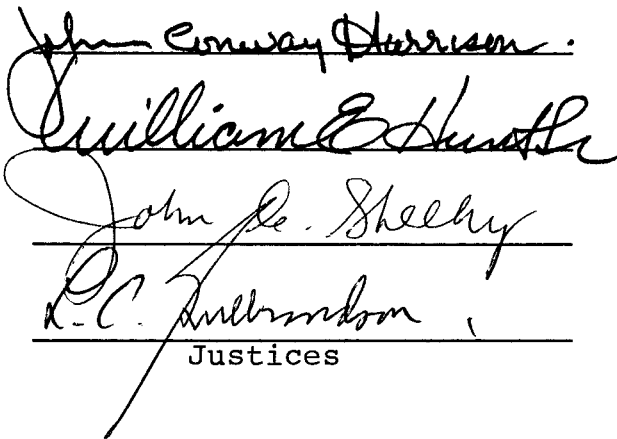 John Conway Harrison.
William E Hunt Sr
John C. Sheehy
L. C. Gulbrandson
Justices